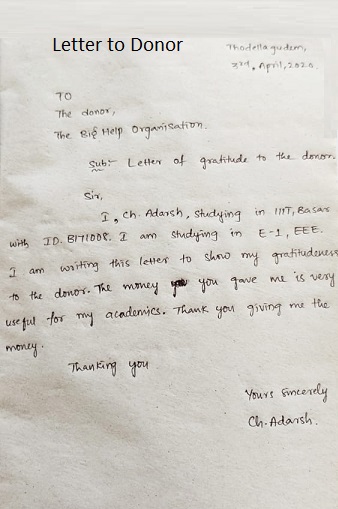 Letter to Donor
Thodellagudem,
3rd, April, 2020.
TO
The donor,
The Big Help Organisation.
Sub:- Letter of gratitude to the donor.
Sir,
I, Ch. Adarsh, studying in IIIT, Basar
with ID. B171008. I am studying in E-1, EEE.
I am writing this letter to show my gratitudeness
to the donor. The money you gave me is very
useful for my academics. Thank you giving me the
money.
Thanking you
Yours Sincerely
Ch. Adarsh.